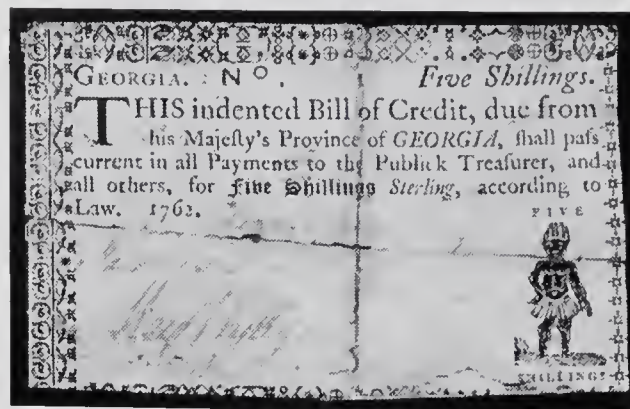 GEORGIA. : No. Five Shillings.
THIS indented Bill of Credit, due from
his Majeſty's Province of GEORGIA, ſhall paſs
current in all Payments to the Publick Treaſurer, and
all others, for Five Shillings Sterling, according to
Law. 1762.
FIVE
SHILLINGS